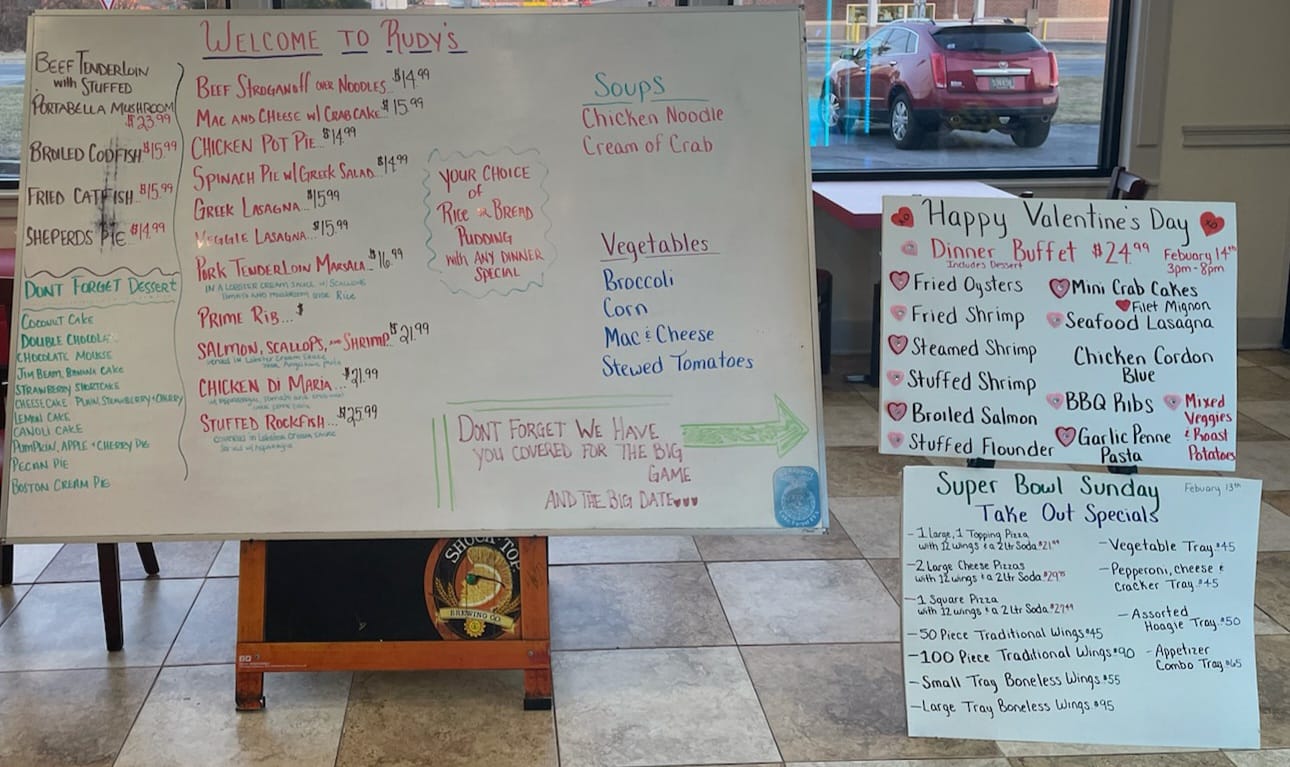 WELCOME TO RUDY'S
BEEF TENDERLOIN
with STUFFED
PORTABELLA MUSHROOM
$23.99
BROILED CODFISH $15.99
FRIED CATFISH $15.99
SHEPERDS PIE $14.99
DONT FORGET DESSERT
COCONUT CAKE
DOUBLE CHOCOLA
CHOCOLATE MOUSSE
JIM BEAM, BANANA CAKE
STRAWBERRY SHORTCAKE
CHEESECAKE PLAIN, STRAWBERRY + CHERRY
LEMON CAKE
CANOLI CAKE
PUMPKIN, APPLE + CHERRY PIE
PECAN PIE
BOSTON CREAM PIE
BEEF STROGANOFF OVER NOODLES $14.99
MAC AND CHEESE W/ CRABCAKE $15.99
CHICKEN POT PIE... $14.99
SPINACH PIE W/ GREEK SALAD $14.99
GREEK LASAGNA... $15.99
VEGGIE LASAGNA... $15.99
PORK TENDERLOIN MARSALA... $16.99
IN A LOBSTER CREAM SAUCE W/ SCALLIONS
TOMATO AND MUSHROOM OVER RICE
PRIME RIB... $
SALMON, SCALLOPS, AND SHRIMP $21.99
Served in Lobster Cream Sauce
CHICKEN DI MARIA... $21.99
STUFFED ROCKFISH... $25.99
covered in Lobster Cream Sauce
YOUR CHOICE
OF
RICE OR BREAD
PUDDING
with ANY DINNER
SPECIAL
Soups
Chicken Noodle
Cream of Crab
Vegetables
Broccoli
Corn
Mac & Cheese
Stewed Tomatoes
DONT FORGET WE HAVE
YOU COVERED FOR THE BIG
GAME
AND THE BIG DATE
SHOCK TOP
BREWING CO.
Happy Valentine's Day
Dinner Buffet $24.99
Includes Dessert
Febuary 14th
3pm-8pm
Fried Oysters
Fried Shrimp
Steamed Shrimp
Stuffed Shrimp
Broiled Salmon
Stuffed Flounder
Mini Crab Cakes
Filet Mignon
Seafood Lasagna
Chicken Cordon
Blue
BBQ Ribs
Garlic Penne
Pasta
Mixed
Veggies
& Roast
Potatoes
Super Bowl Sunday
Febuary 13th
Take Out Specials
- 1 Large, 1 Topping Pizza
with 12 wings & a 2 Ltr Soda $21.99
- 2 Large Cheese Pizzas
with 12 wings & a 2 Ltr Soda $29.95
- 1 Square Pizza
with 12 wings & a 2 Ltr Soda $27.99
- 50 Piece Traditional Wings $45
- 100 Piece Traditional Wings $90
- Small Tray Boneless Wings $55
- Large Tray Boneless Wings $95
- Vegetable Tray $45
- Pepperoni, cheese &
Cracker Tray $45
- Assorted
Hoagie Tray $50
- Appetizer
Combo Tray $65